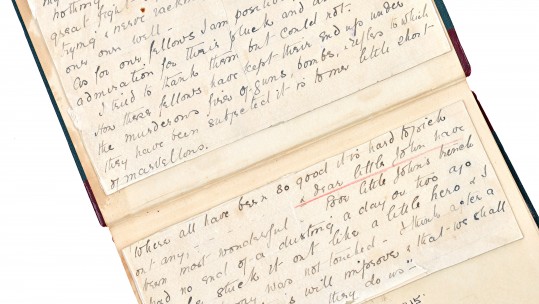 nothing
great fight
trying & nerve rackin
our own well.
As for our fellows I am positive
admiration for their pluck and
I tried to thank them but could not.
How these fellows have kept their end up under
the murderous fire of guns, bombs, rifles to which
they have been subjected it is to me little short
of marvellous.
Where all have been so good it is hard to pick
out any, & dear little John have
been most wonderful. Poor little John's trench
had no end of a dusting a day or two ago
he stuck it out like a little hero & I
was not touched. I think after a
will improve & that we shall
they do us"
15.